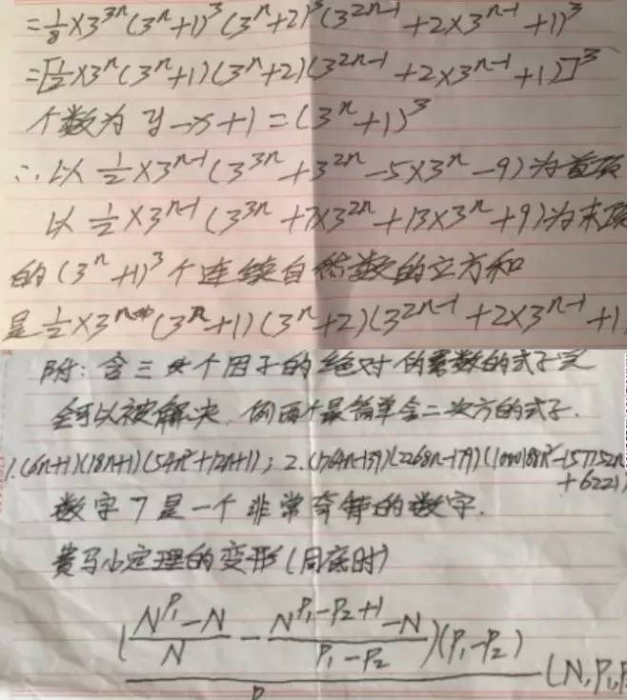 =1/8×3^{3n}(3^n+1)^3(3^n+2)^3(3^{2n-1}+2×3^{n-1}+1)^3
=[1/2×3^n(3^n+1)(3^n+2)(3^{2n-1}+2×3^{n-1}+1)]^3
个数为 y-x+1=(3^n+1)^3
∴以 1/2×3^{n-1}(3^{3n}+3^{2n}-5×3^n-9)为首项
以 1/2×3^{n-1}(3^{3n}+7×3^{2n}+13×3^n+9)为末项
的(3^n+1)^3个连续自然数的立方和
是 1/2×3^n(3^n+1)(3^n+2)(3^{2n-1}+2×3^{n-1}+1
附:含三个因子的绝对伪素数的式子完
全可以被解决.例两个最简单含二次方的式子.
1.(6n+1)(18n+1)(54n²+12n+1); 2.(1764n-139)(2268n-179)(1000188n²-157752n
+6221)
数字7是一个非常奇特的数字.
费马小定理的变形(同底时)
((N^{P₁}-N)/N - (N^{P₁-P₂+1}-N)/(P₁-P₂))(P₁-P₂) (N,P₁,P